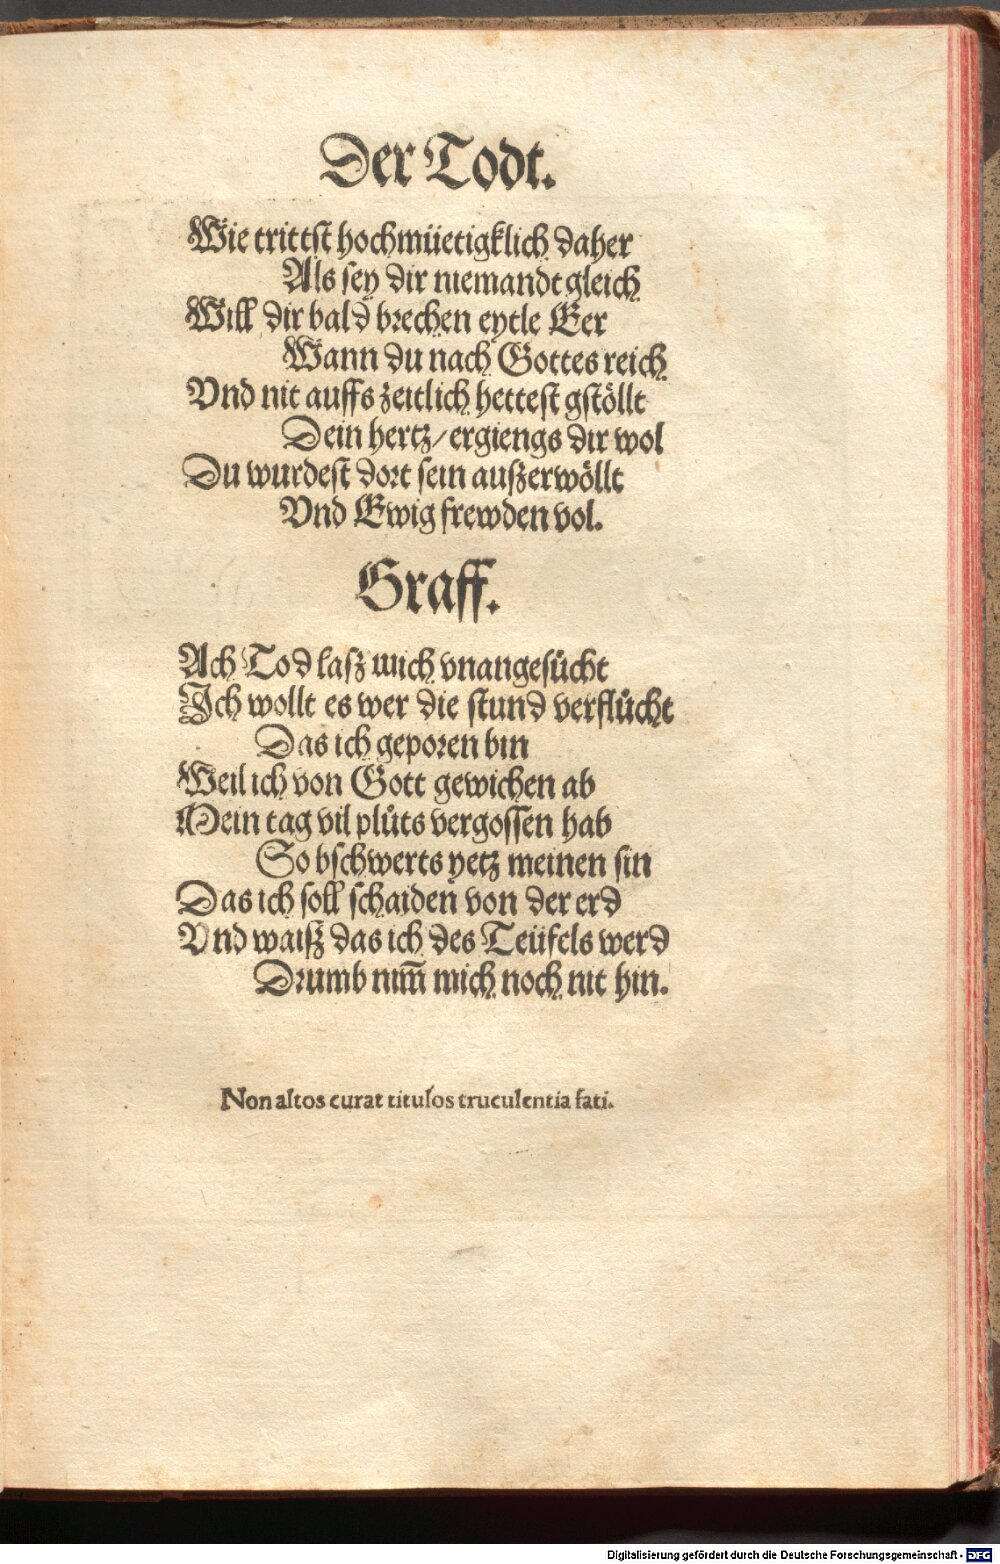 Der Todt.
Wie trittst hochmüetigklich daher
Als sey dir niemandt gleich
Will dir bald brechen eytle Eer
Wann du nach Gottes reich
Vnd nit auffs zeitlich hettest gstöllt
Dein hertz/ ergiengs dir wol
Du wurdest dort sein außerwöllt
Vnd Ewig frewden vol.
Graff.
Ach Tod lasz mich vnangesůcht
Ich wollt es wer die stund verflůcht
Das ich geporen bin
Weil ich von Gott gewichen ab
Mein tag vil plůts vergossen hab
So bschwerts yetz meinen sin
Das ich soll schaiden von der erd
Vnd waisz das ich des Teüfels werd
Drumb nim̄ mich noch nit hin.
Non altos curat titulos truculentia fati.
Digitalisierung gefördert durch die Deutsche Forschungsgemeinschaft - DFG